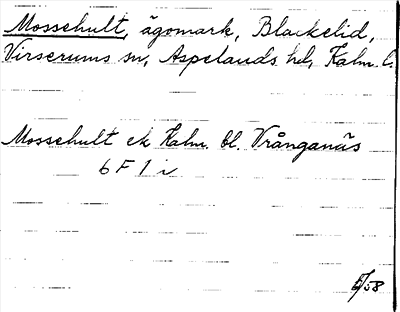 Mossehult, ägomark, Blackelid,
Virserums sn, Aspelands hd, Kalm. l.
Mossehult ek Kalm. bl. Vrånganäs
6 F 1 i
/58